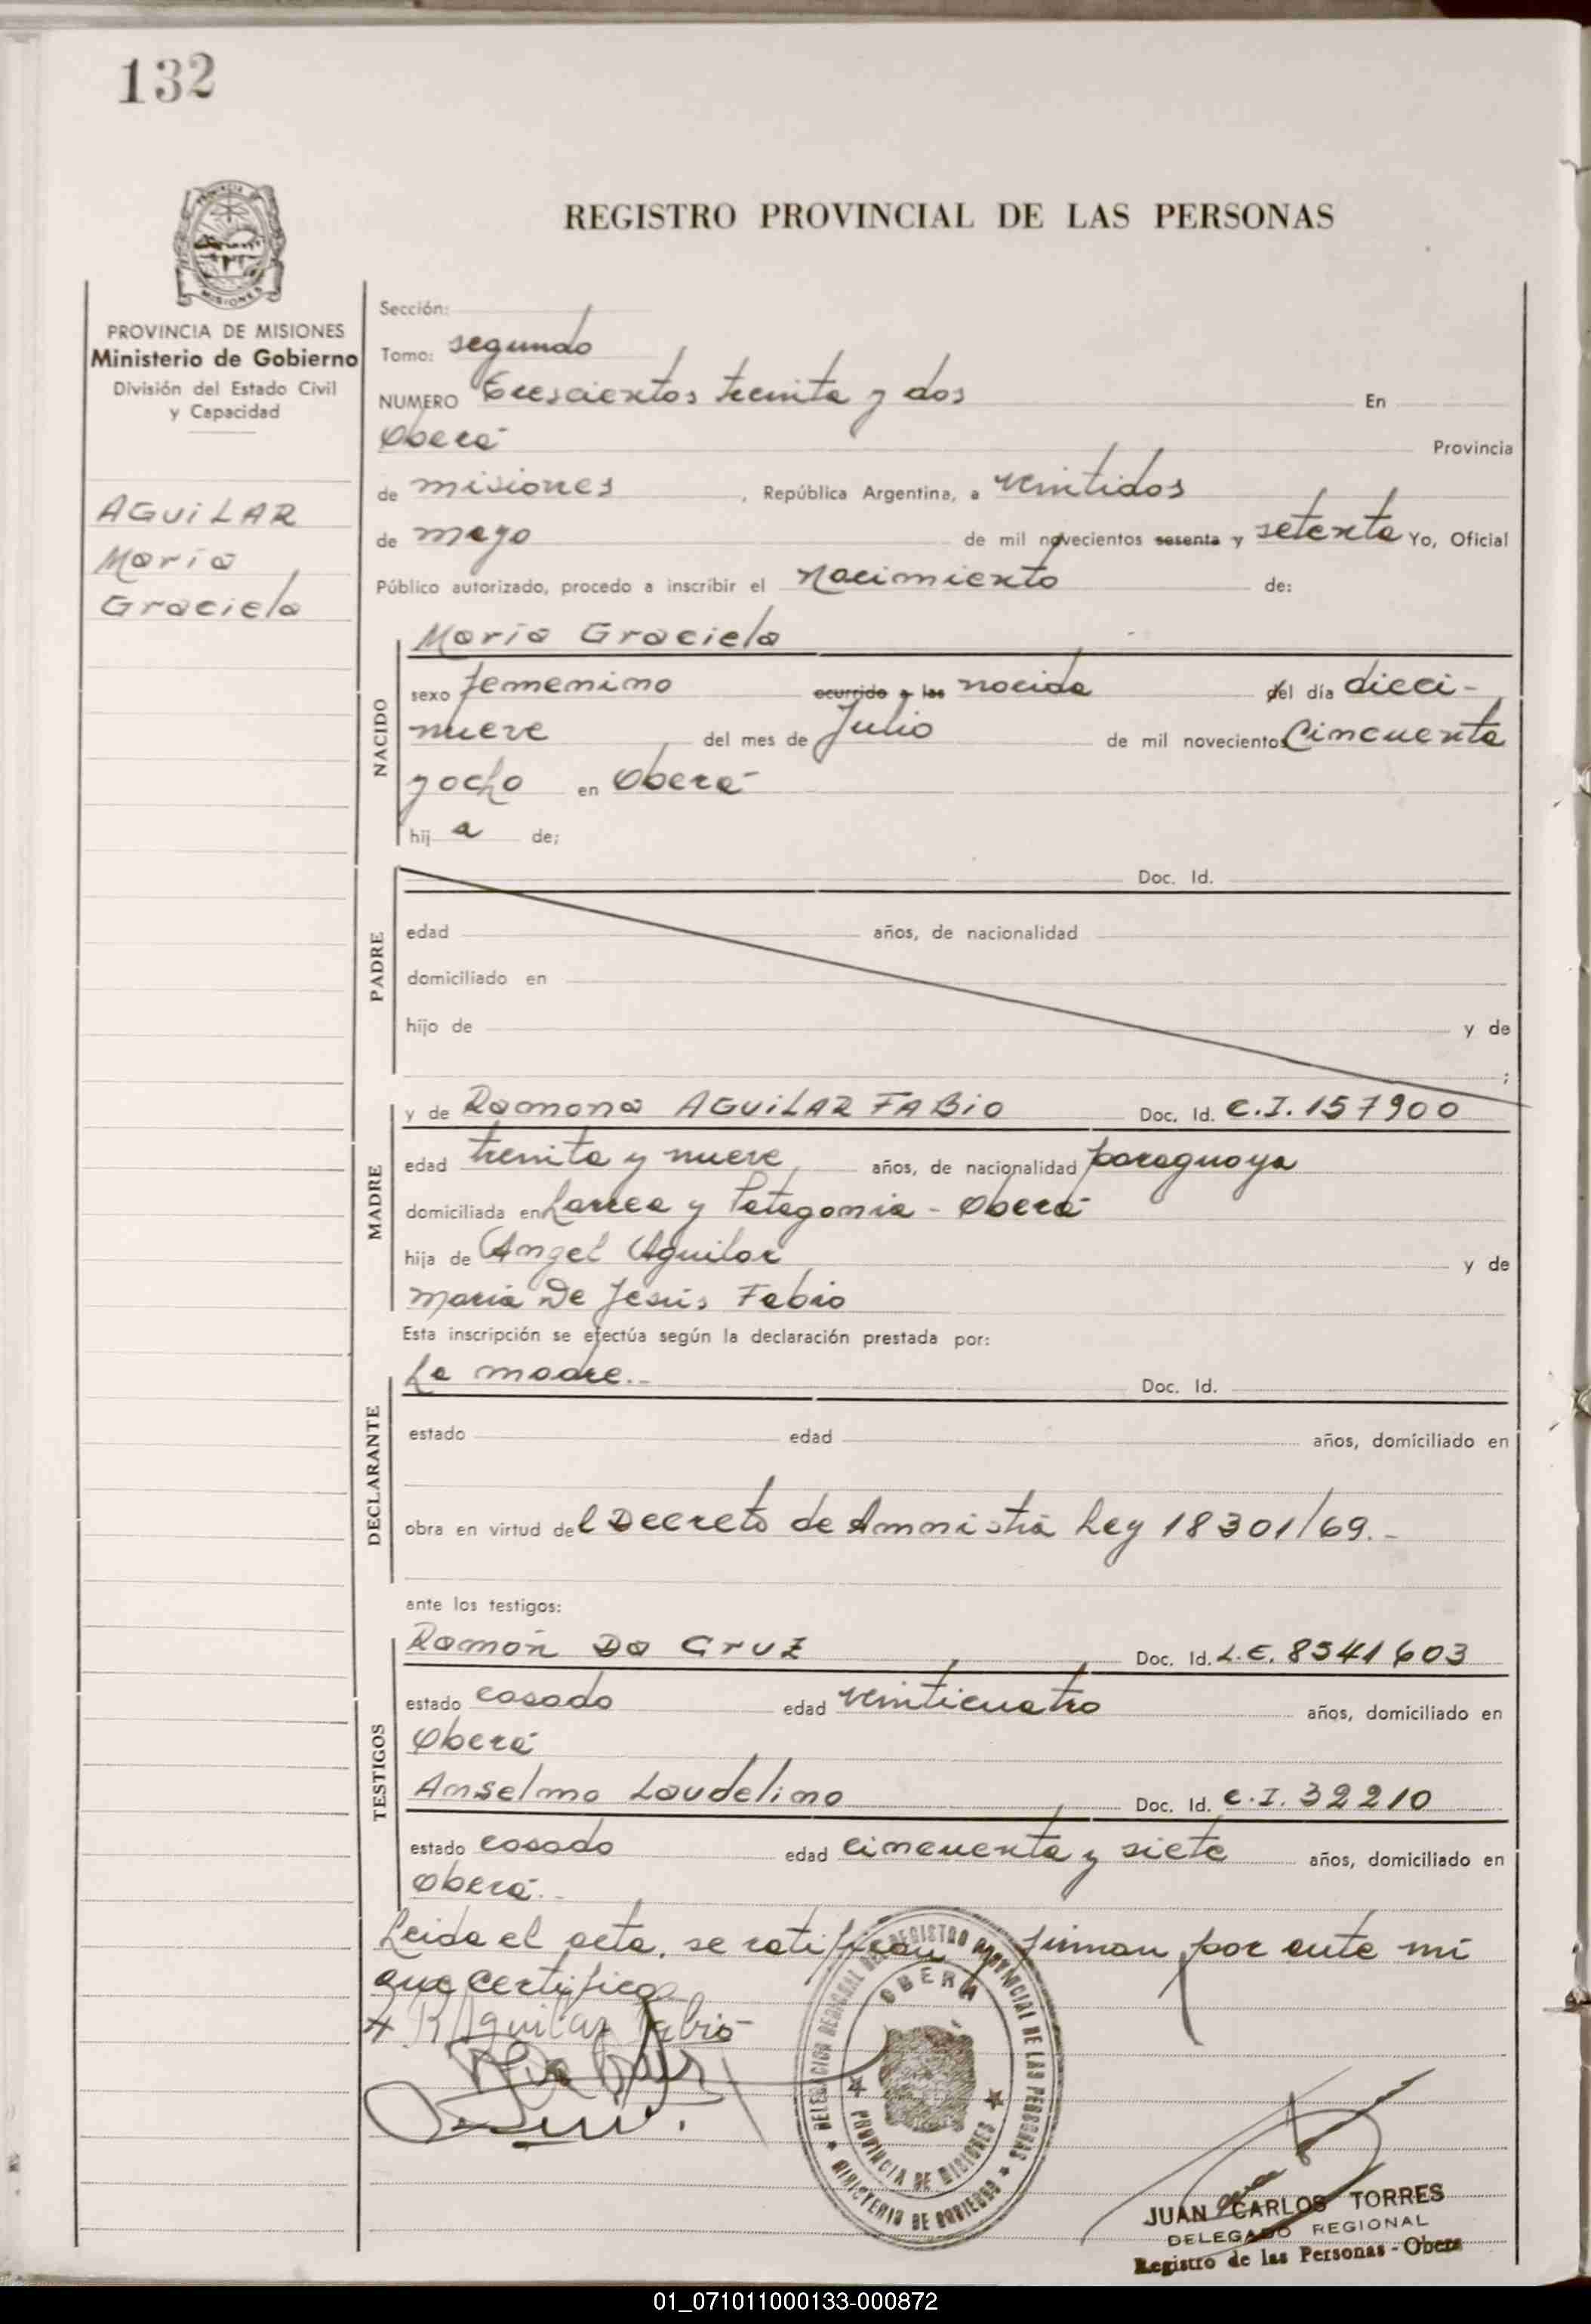 132
REGISTRO PROVINCIAL DE LAS PERSONAS
PROVINCIA DE MISIONES
Ministerio de Gobierno
División del Estado Civil
y Capacidad
AGUILAR
María
Graciela
Sección:
Tomo: segundo
NUMERO Trescientos treinta y dos En
Oberá Provincia
de misiones, República Argentina, a veintidos
de mayo de mil novecientos sesenta y setenta Yo, Oficial
Público autorizado, procedo a inscribir el Nacimiento de:
NACIDO
María Graciela
sexo femenino ocurrido a las nacida del día dieci-
nueve del mes de Julio de mil novecientos Cincuenta
y ocho en Oberá
hij a de;
PADRE
Doc. Id.
edad años, de nacionalidad
domiciliado en
hijo de y de
;
MADRE
y de Ramona AGUILAR FABIO Doc. Id. C.I. 157900
edad treinta y nueve años, de nacionalidad paraguaya
domiciliada en Larrea y Patagonia - Oberá
hija de Angel Aguilar y de
María De Jesús Fabio
Esta inscripción se efectúa según la declaración prestada por:
DECLARANTE
La madre.- Doc. Id.
estado edad años, domiciliado en
obra en virtud del Decreto de Amnistía Ley 18301/69.-
ante los testigos:
TESTIGOS
Ramón Da Cruz Doc. Id. L.E. 8541603
estado casado edad veinticuatro años, domiciliado en
Oberá
Anselmo Laudelino Doc. Id. C.I. 32210
estado casado edad cincuenta y siete años, domiciliado en
Oberá.-
Leida el acta, se ratifican y firman por ante mi
que certifico
R Aguilar Fabio
DELEGACION REGIONAL DEL REGISTRO PROVINCIAL DE LAS PERSONAS
OBERA
PROVINCIA DE MISIONES
MINISTERIO DE GOBIERNO
JUAN CARLOS TORRES
DELEGADO REGIONAL
Registro de las Personas - Obera
01_071011000133-000872